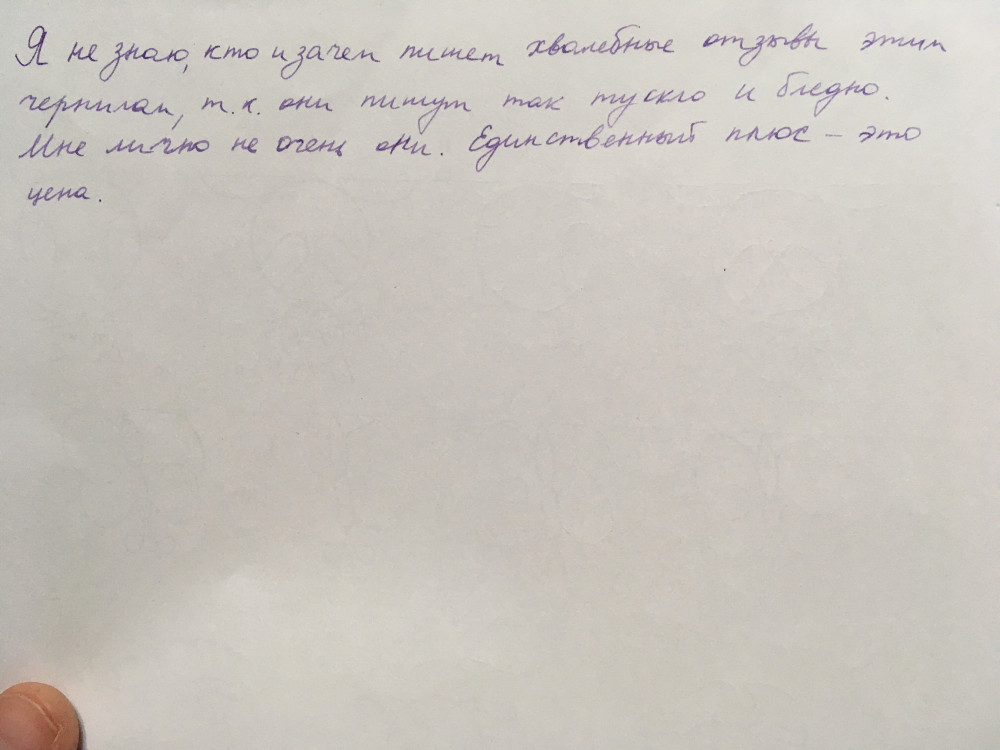 Я не знаю, кто и зачем пишет хвалебные отзывы этим
чернилам, т.к. они пишут так тускло и бледно.
Мне лично не очень они. Единственный плюс – это
цена.